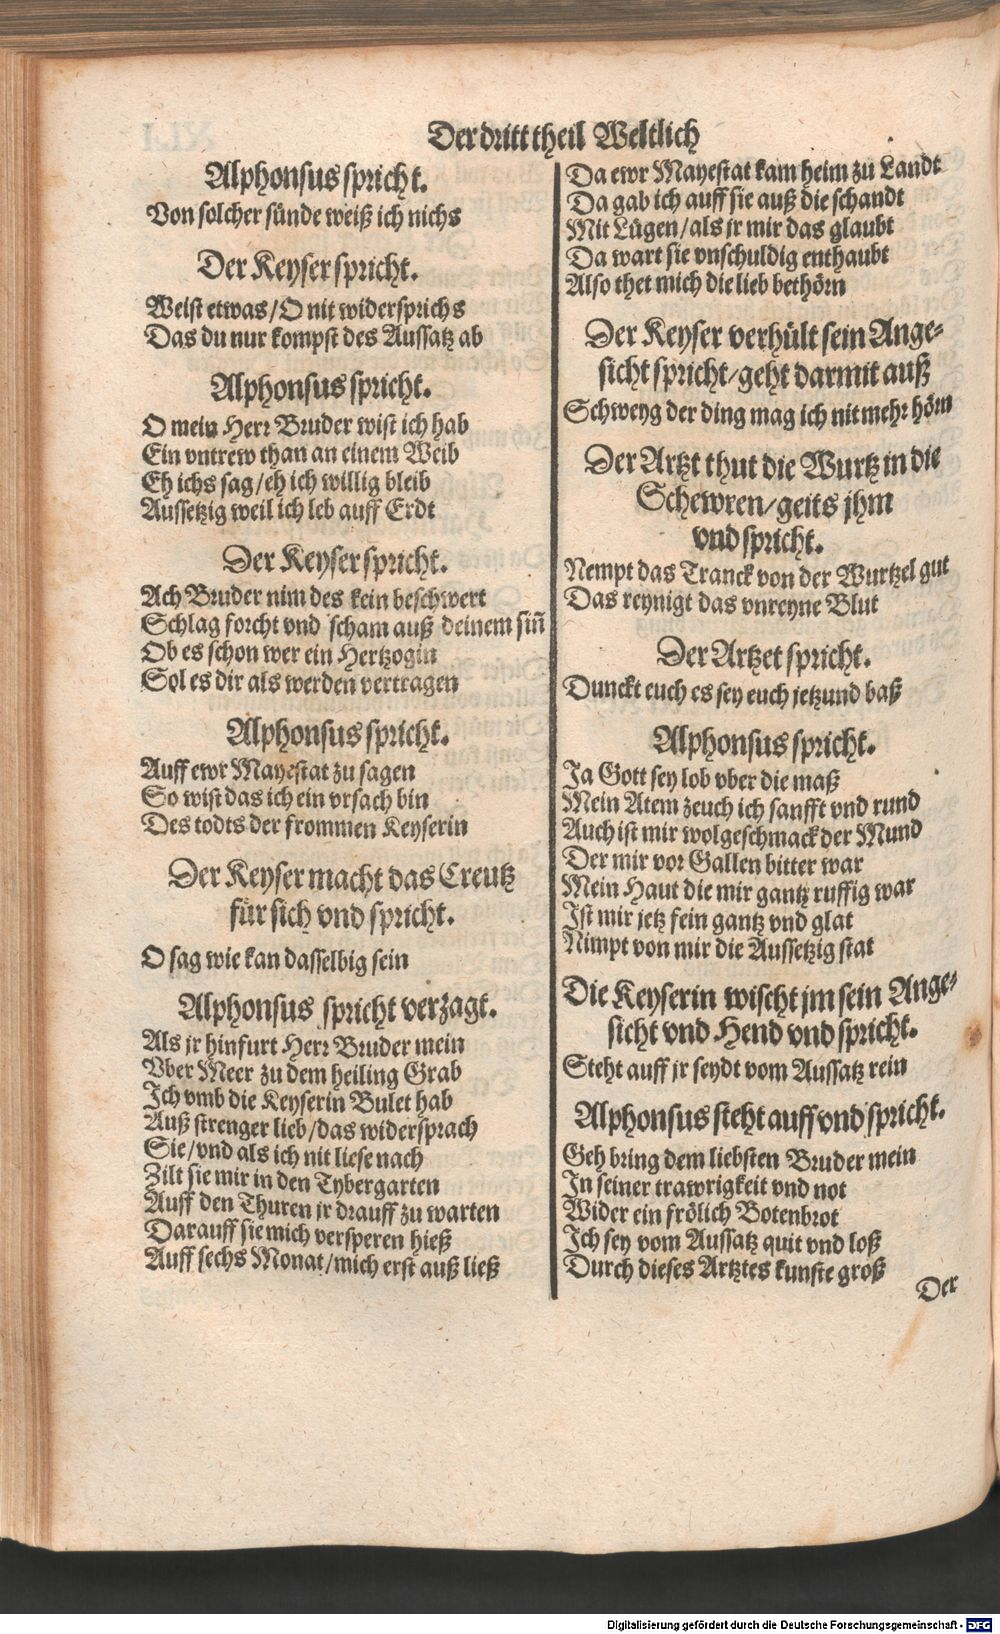 Der dritt theil Weltlich
Alphonsus spricht.
Von solcher sünde weiß ich nichs
Der Keyser spricht.
Weist etwas/O nit widersprichs
Das du nur kompst des Aussatz ab
Alphonsus spricht.
O mein Herr Bruder wist ich hab
Ein vntrew than an einem Weib
Eh ichs sag/eh ich willig bleib
Aussetzig weil ich leb auff Erdt
Der Keyser spricht.
Ach Bruder nim des kein beschwert
Schlag forcht vnd scham auß deinem siñ
Ob es schon wer ein Hertzogin
Sol es dir als werden vertragen
Alphonsus spricht.
Auff ewr Mayestat zu sagen
So wist das ich ein vrsach bin
Des todts der frommen Keyserin
Der Keyser macht das Creutz
für sich vnd spricht.
O sag wie kan dasselbig sein
Alphonsus spricht verzagt.
Als jr hinfurt Herr Bruder mein
Vber Meer zu dem heiling Grab
Ich vmb die Keyserin Bulet hab
Auß strenger lieb/das widersprach
Sie/vnd als ich nit liese nach
Zilt sie mir in den Tybergarten
Auff den Thuren jr drauff zu warten
Darauff sie mich versperen hieß
Auff sechs Monat/mich erst auß ließ
Da ewr Mayestat kam heim zu Landt
Da gab ich auff sie auß die schandt
Mit Lügen/als jr mir das glaubt
Da wart sie vnschuldig enthaubt
Also thet mich die lieb bethörn
Der Keyser verhült sein Ange-
sicht spricht/geht darmit auß
Schweyg der ding mag ich nit mehr hörn
Der Artzt thut die Wurtz in die
Schewren/geits jhm
vnd spricht.
Nempt das Tranck von der Wurtzel gut
Das reynigt das vnreyne Blut
Der Artzet spricht.
Dunckt euch es sey euch jetzund baß
Alphonsus spricht.
Ja Gott sey lob vber die maß
Mein Atem zeuch ich sanfft vnd rund
Auch ist mir wolgeschmack der Mund
Der mir vor Gallen bitter war
Mein Haut die mir gantz ruffig war
Ist mir jetz fein gantz vnd glat
Nimpt von mir die Aussetzig stat
Die Keyserin wischt jm sein Ange-
sicht vnd Hend vnd spricht.
Steht auff jr seydt vom Aussatz rein
Alphonsus steht auff vnd spricht.
Geh bring dem liebsten Bruder mein
In seiner trawrigkeit vnd not
Wider ein frölich Botenbrot
Ich sey vom Aussatz quit vnd loß
Durch dieses Artztes kunste groß
Der
Digitalisierung gefördert durch die Deutsche Forschungsgemeinschaft - DFG